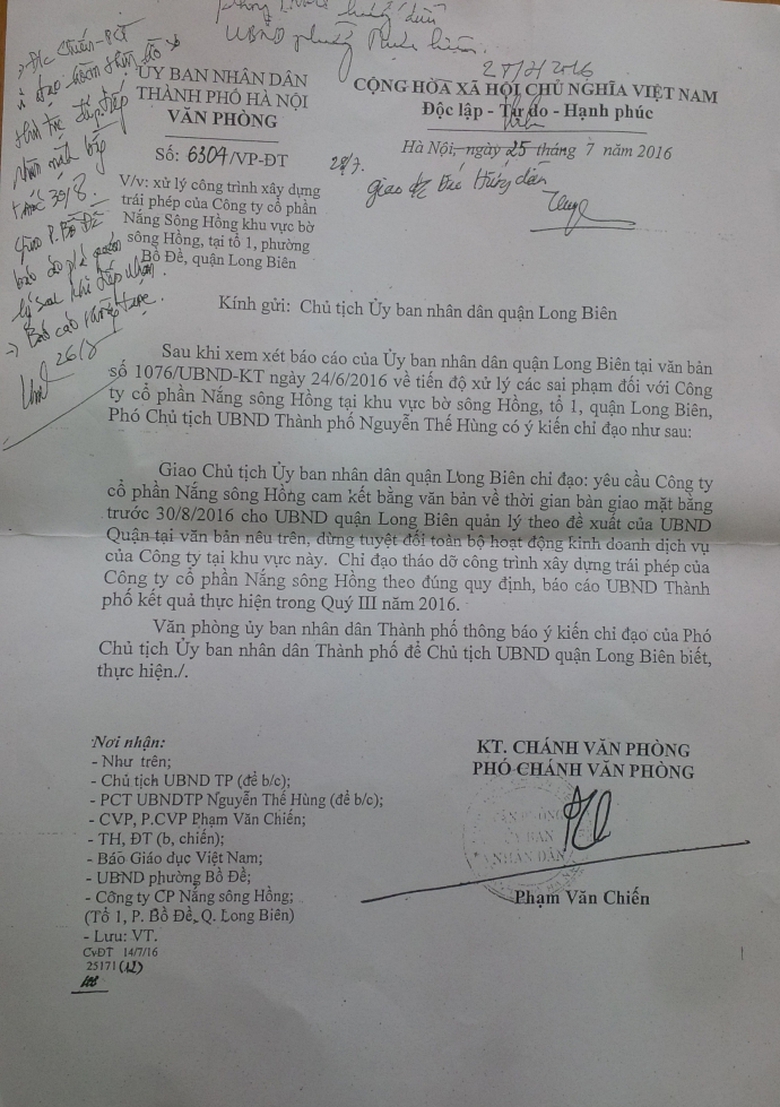 UBND phường thực hiện.
27/7/2016
ỦY BAN NHÂN DÂN
THÀNH PHỐ HÀ NỘI
VĂN PHÒNG
Số: 6304/VP-ĐT
V/v: xử lý công trình xây dựng
trái phép của Công ty cổ phần
Nắng Sông Hồng khu vực bờ
sông Hồng, tại tổ 1, phường
Bồ Đề, quận Long Biên
CỘNG HÒA XÃ HỘI CHỦ NGHĨA VIỆT NAM
Độc lập - Tự do - Hạnh phúc
Hà Nội, ngày 25 tháng 7 năm 2016
28/7.
giao đ/c Hướng dẫn
trước 30/8.
Giao P. Bồ Đề
báo cáo
lý sau khi tiếp nhận.
→ Báo cáo
26/8
Kính gửi: Chủ tịch Ủy ban nhân dân quận Long Biên
Sau khi xem xét báo cáo của Ủy ban nhân dân quận Long Biên tại văn bản
số 1076/UBND-KT ngày 24/6/2016 về tiến độ xử lý các sai phạm đối với Công
ty cổ phần Nắng sông Hồng tại khu vực bờ sông Hồng, tổ 1, quận Long Biên,
Phó Chủ tịch UBND Thành phố Nguyễn Thế Hùng có ý kiến chỉ đạo như sau:
Giao Chủ tịch Ủy ban nhân dân quận Long Biên chỉ đạo: yêu cầu Công ty
cổ phần Nắng sông Hồng cam kết bằng văn bản về thời gian bàn giao mặt bằng
trước 30/8/2016 cho UBND quận Long Biên quản lý theo đề xuất của UBND
Quận tại văn bản nêu trên, dừng tuyệt đối toàn bộ hoạt động kinh doanh dịch vụ
của Công ty tại khu vực này. Chỉ đạo tháo dỡ công trình xây dựng trái phép của
Công ty cổ phần Nắng sông Hồng theo đúng quy định, báo cáo UBND Thành
phố kết quả thực hiện trong Quý III năm 2016.
Văn phòng ủy ban nhân dân Thành phố thông báo ý kiến chỉ đạo của Phó
Chủ tịch Ủy ban nhân dân Thành phố để Chủ tịch UBND quận Long Biên biết,
thực hiện./.
Nơi nhận:
- Như trên;
- Chủ tịch UBND TP (để b/c);
- PCT UBNDTP Nguyễn Thế Hùng (để b/c);
- CVP, P.CVP Phạm Văn Chiến;
- TH, ĐT (b, chiến);
- Báo Giáo dục Việt Nam;
- UBND phường Bồ Đề;
- Công ty CP Nắng sông Hồng;
(Tổ 1, P. Bồ Đề, Q. Long Biên)
- Lưu: VT.
CvĐT 14/7/16
25171 (12)
KT. CHÁNH VĂN PHÒNG
PHÓ CHÁNH VĂN PHÒNG
VĂN PHÒNG
ỦY BAN
NHÂN DÂN
Phạm Văn Chiến